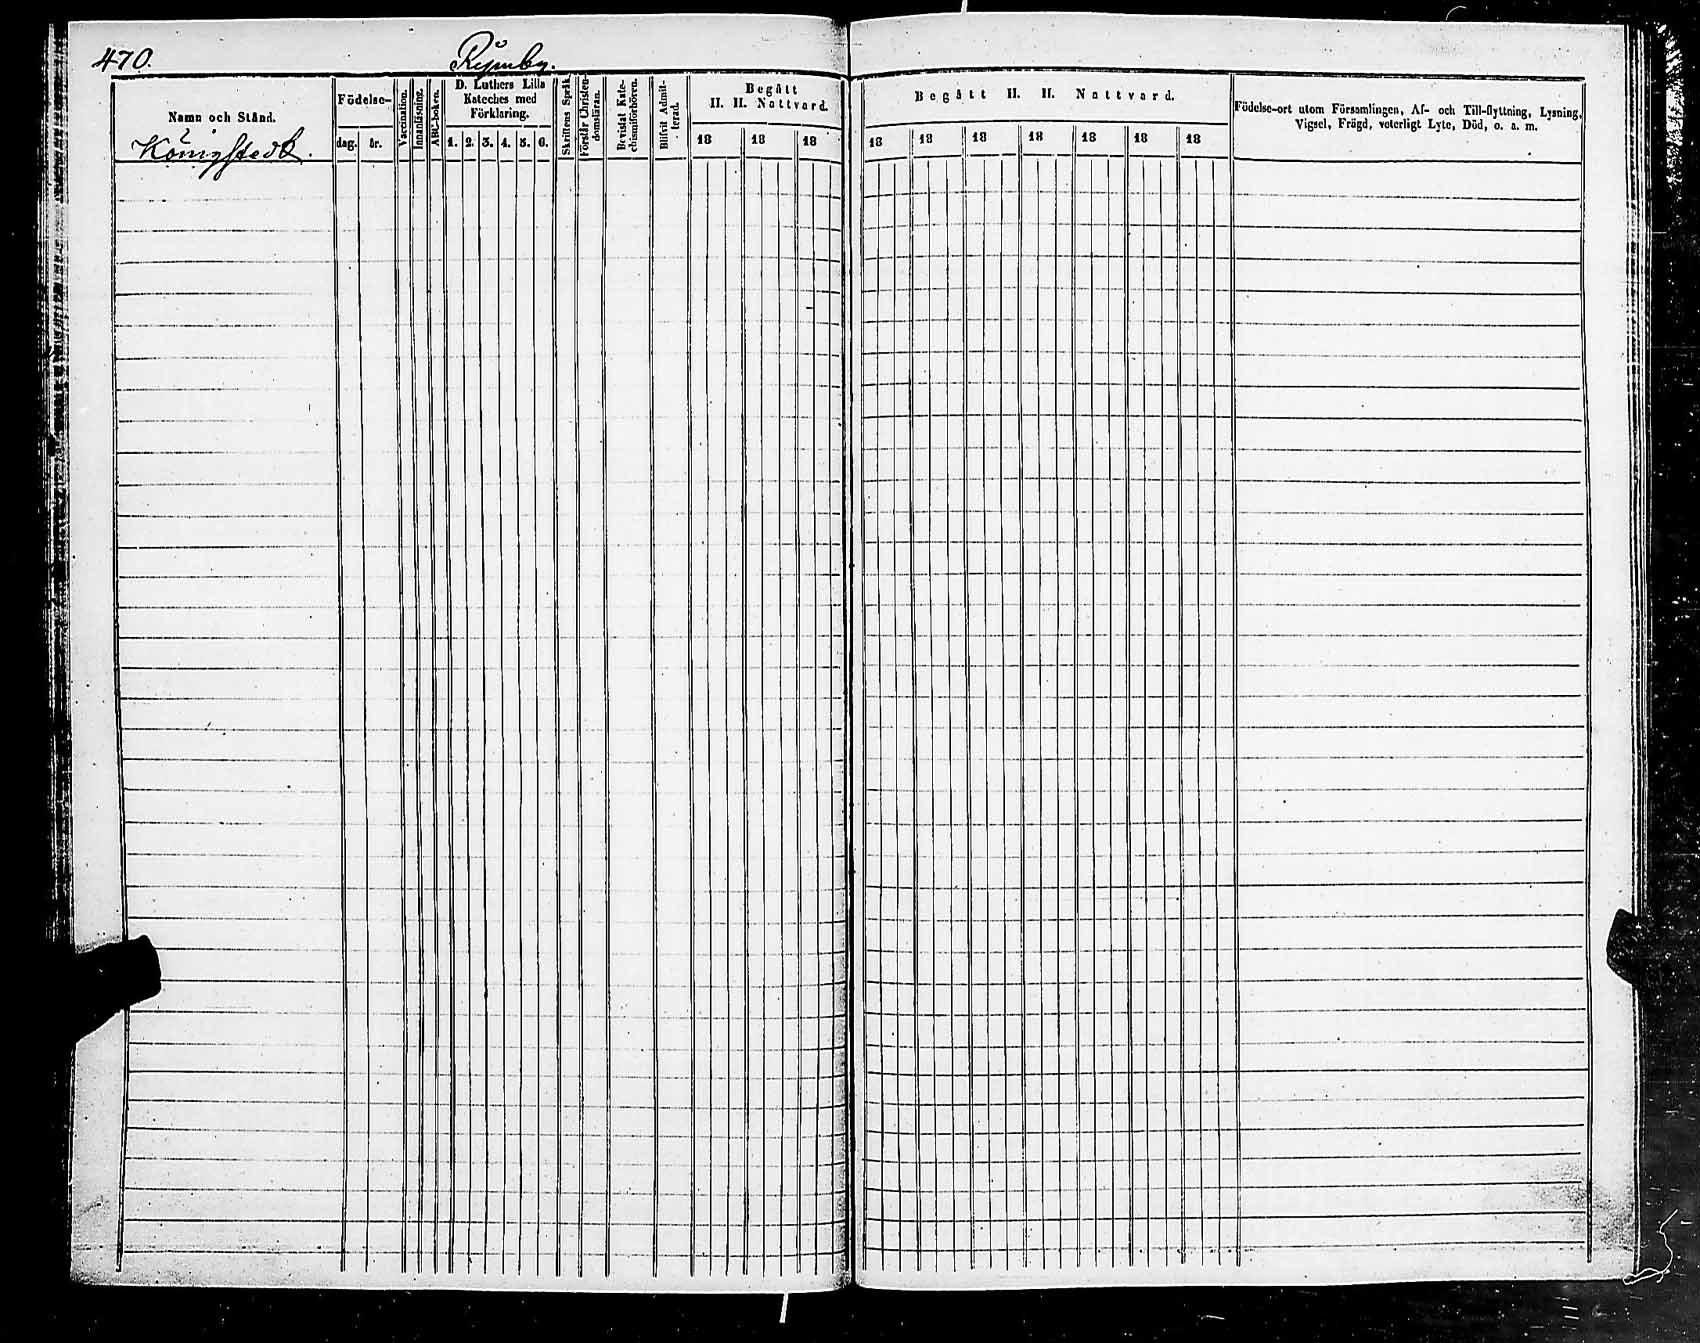 470. Rÿmby.
Namn och Stånd.
Königstedt.
Födelse-
dag. år.
Vaccination.
Innanläsning.
ABC-boken.
D. Luthers Lilla
Kateches med
Förklaring.
1. 2. 3. 4. 5. 6.
Skriftens Språk.
Förstår Christen-
domsläran.
Bevistat Kate-
chismiförhören.
Blifvit Admit-
terad.
Begått
H. H. Nattvard.
18 18 18
Begått H. H. Nattvard.
18 18 18 18 18 18 18
Födelse-ort utom Församlingen, Af- och Till-flyttning, Lysning,
Vigsel, Frägd, veterligt Lyte, Död, o. s. m.